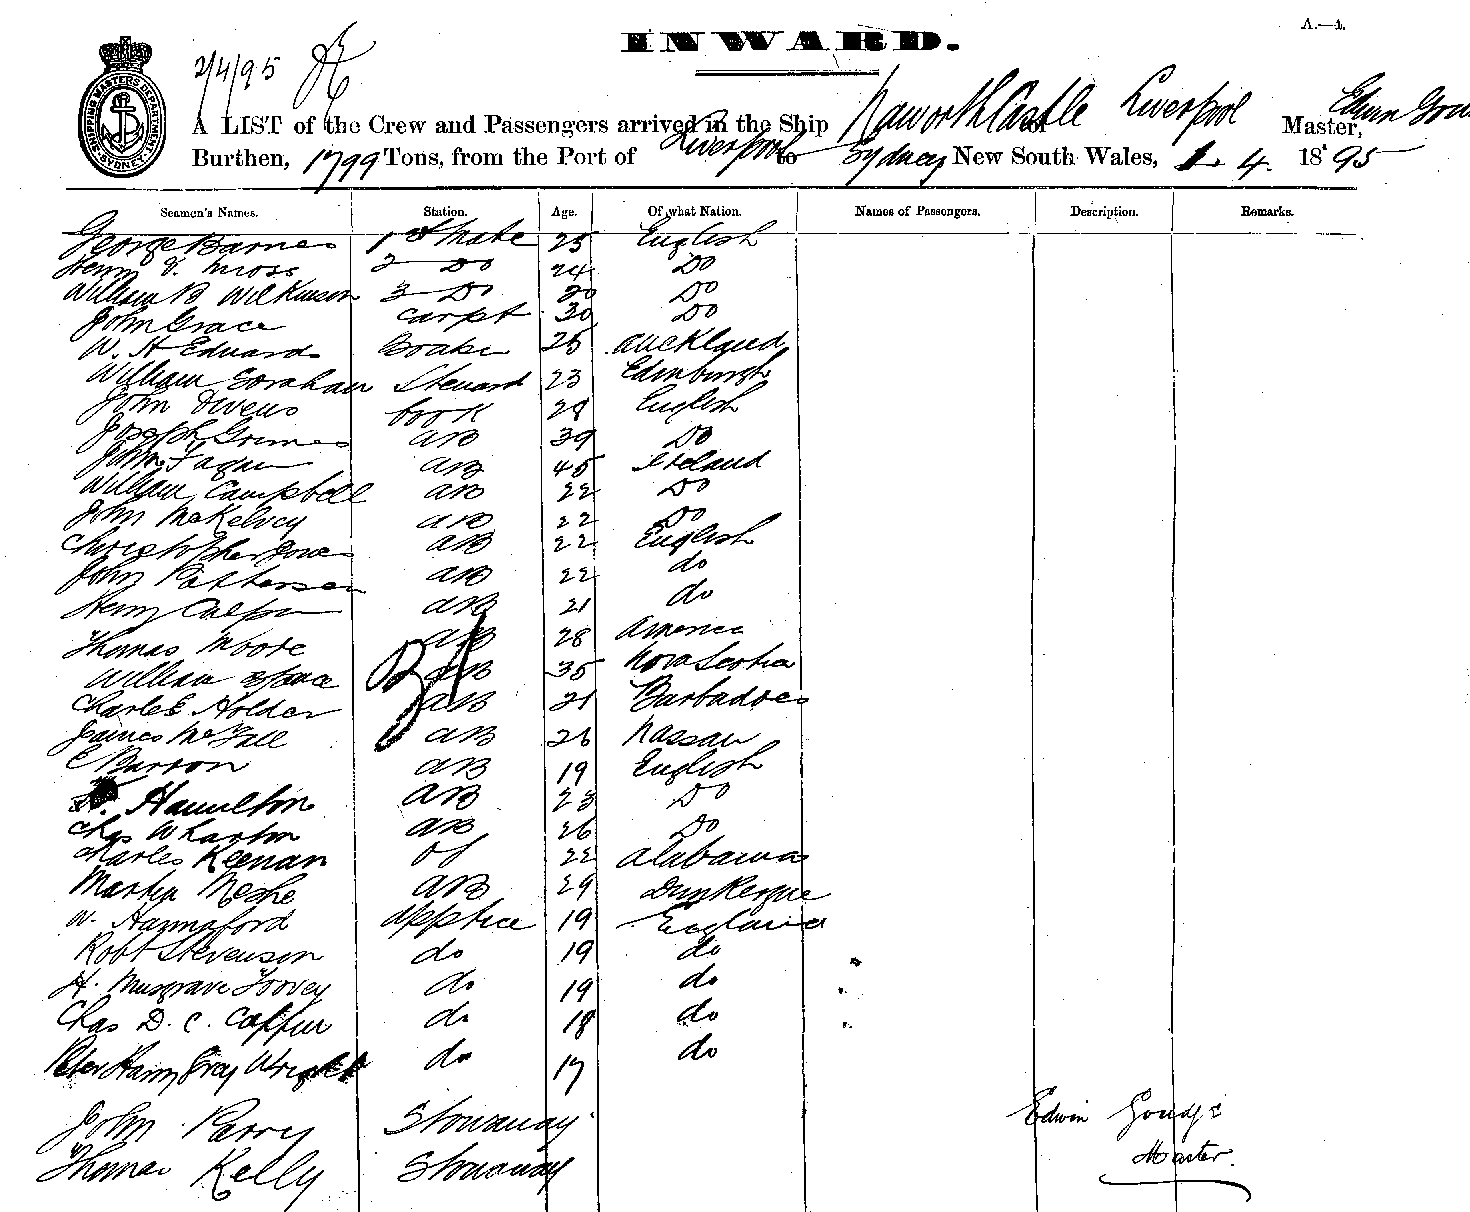 A.—1.
INWARD.
2/4/95
SHIPPING MASTERS DEPARTMENT SYDNEY
A LIST of the Crew and Passengers arrived in the Ship Naworth Castle of Liverpool Master, Edwin
Burthen, 1799 Tons, from the Port of Liverpool to Sydney New South Wales, 1. 4. 1895
Seamen's Names. Station. Age. Of what Nation. Names of Passengers. Description. Remarks.
George Barnes 1st Mate 25 English
Henry Moss 2 Do 24 Do
William B Wilkinson 3 Do 20 Do
John Grace Carpt 30 Do
W. H Edwards 25 Auckland
William Graham Steward 23 Edinburgh
John Owens Cook 28 English
Joseph Grimes AB 39 Do
John Fagan AB 45 Ireland
William Campbell AB 22 Do
John McKelvey AB 22 Do
Christopher Jones AB 22 English
John Patterson AB 22 do
Henry AB 21 do
Thomas Moore AB 28 America
William AB 35 Nova Scotia
Charles Holder AB 21 Barbadoes
James McFall AB 26 Nassau
C Barron AB 19 English
Hamilton AB 23 Do
Chas Wharton AB 26 Do
Charles Keenan OS 22 Alabama
Martin AB 29 Dunkerque
W. Hannaford Apptice 19 England
Robt Stevenson do 19 do
H. Musgrave Toovey do 19 do
Chas D. C. do 18 do
Peter Harry Gray Wright do 17 do
John Parry Stowaway
Thomas Kelly Stowaway
31
Edwin Goudge
Master.